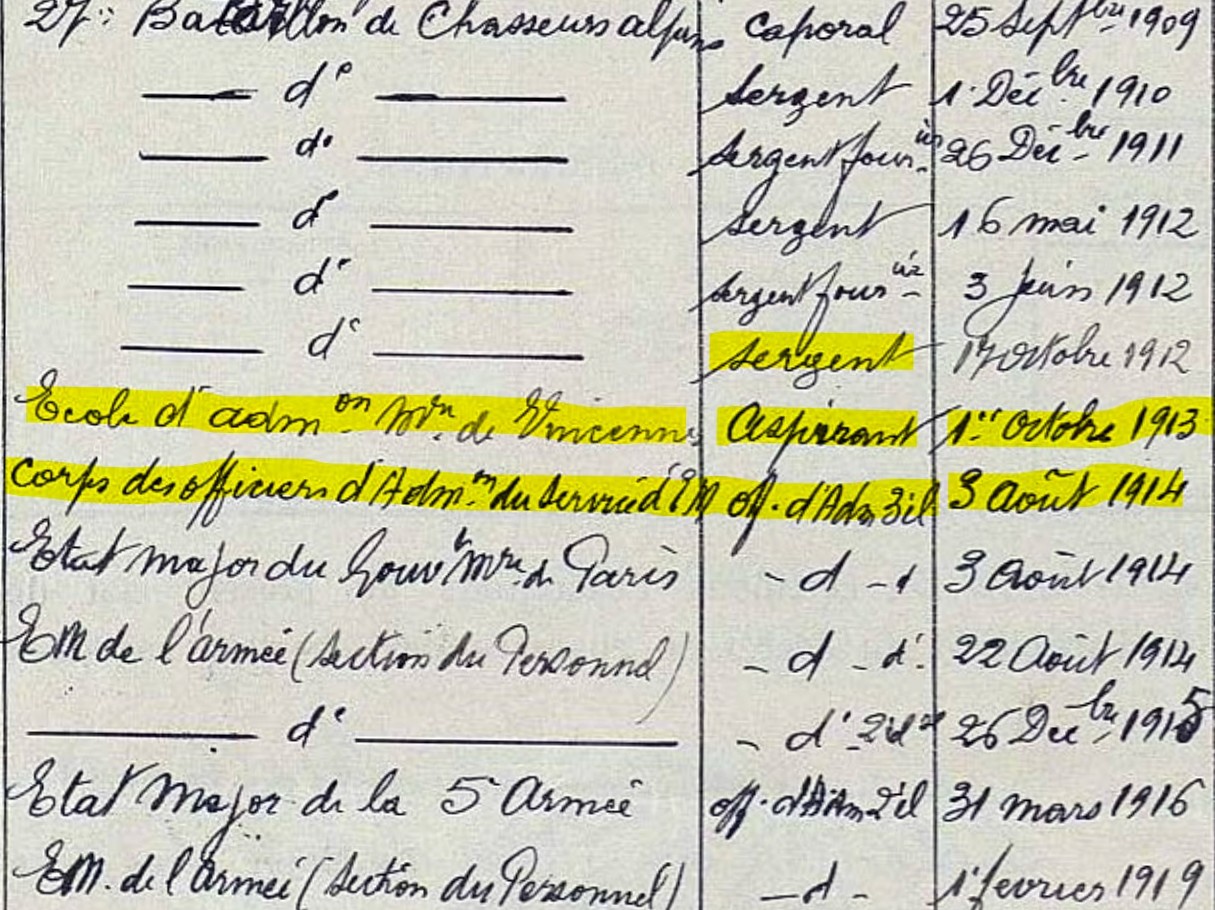 27e Bataillon de Chasseurs alpins caporal 25 Septbre 1909
d° Sergent 1 Décbre 1910
d° Sergent fourier 26 Décbre 1911
d° Sergent 16 mai 1912
d° Sergent fourier 3 juin 1912
d° Sergent 17 octobre 1912
Ecole d'admon Mre de Vincennes Aspirant 1er Octobre 1913
Corps des officiers d'Admon du Service d'EM off. d'Adm 3e cl 3 Août 1914
Etat major du Gouvt Mre de Paris - d - d° 3 Août 1914
EM de l'armée (Section du Personnel) - d - d° 22 Août 1914
d° - d° 2e cl 26 Décbre 1915
Etat Major de la 5e Armée off. d'Adm 2e cl 31 mars 1916
EM. de l'Armée (Section du Personnel) - d - 1er fevrier 1919